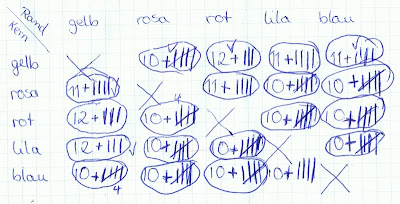 Rand
Kern
gelb rosa rot lila blau
gelb 10+ 12+||| 11+|||| 11+
rosa 11+|||| 11+|||| 10+ 10+
rot 12+||| 10+ 4 10+ 10+
lila 12+||| 10+ 10+ 10+
blau 10+ 4 10+ 10+ 10+||||